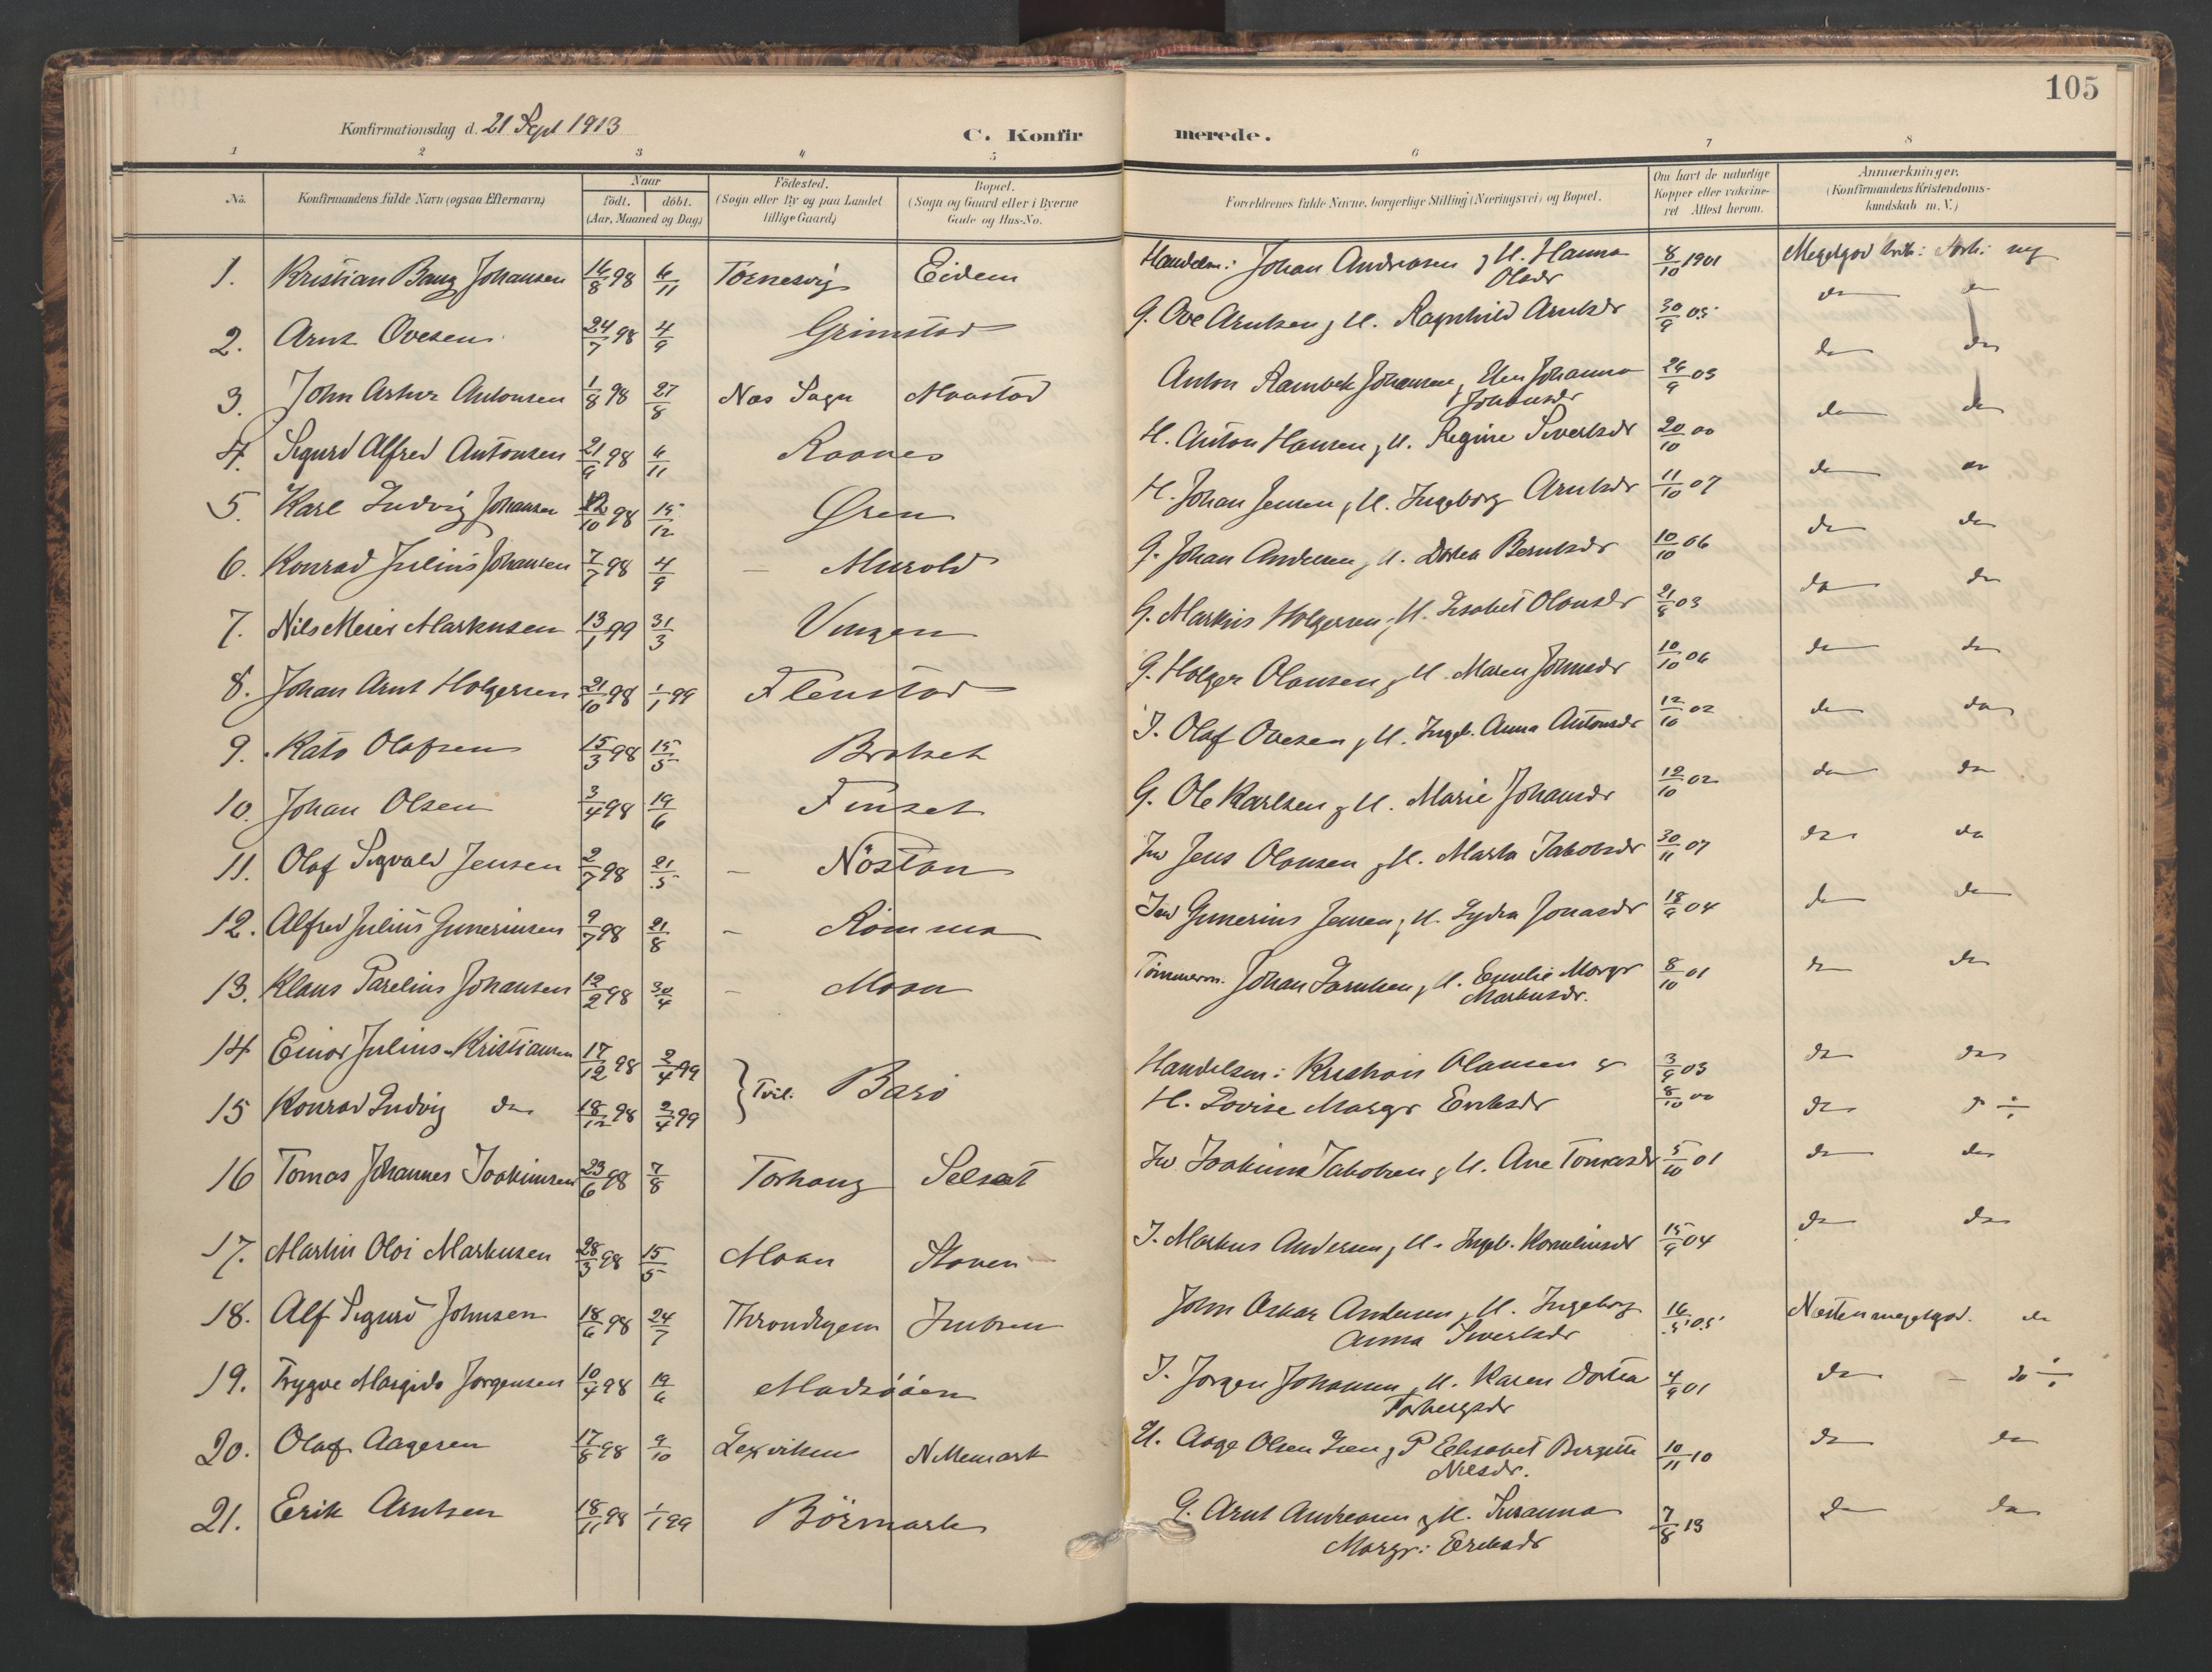 105
Konfirmationsdag d. 21 Sept 1913
C. Konfirmerede.
1 2 3 4 5 6 7 8
No.
Konfirmandens fulde Navn (ogsaa Efternavn)
Naar
födt. döbt.
(Aar, Maaned og Dag)
Födested.
(Sogn eller By og paa Landet
tillige Gaard)
Bopæl.
(Sogn og Gaard eller i Byerne
Gade og Hus-No.
Forældrenes fulde Navne, borgerlige Stilling (Næringsvei) og Bopæl.
Om havt de naturlige
Kopper eller vakcine-
ret Attest herom.
Anmærkninger.
(Konfirmandens Kristendoms-
kundskab m. V.)
1. Kristian Bang Johansen 16/8 98 6/11 Tornesvig Eidem Handelsm: Johan Andreasen & H. Hanna Olsdr 8/10 1901 Megetgod
2. Arnt Ovesen 24/7 98 4/9 Grimstad G. Ove Arntsen & H. Ragnhild Arntsdr 30/9 05 do do
3. John Artur Antonsen 1/8 98 27/8 Næs Sogn Monstad Anton Rambek Johansen & Elen Johanna Johansdr 26/9 03 do do
4. Sigurd Alfred Antonsen 21/9 98 6/11 Raanes H. Anton Hansen & H. Regine Sivertsdr 20/10 00 do do
5. Karl Ludvig Johansen 12/10 98 15/12 Øren H. Johan Jensen & H. Ingeborg Arntsdr 11/10 07 do do
6. Konrad Julius Johansen 7/7 98 4/9 – Murvold G. Johan Andersen & H. Dortea Berntsdr 10/10 06 do do
7. Nils Meier Markusen 13/1 99 31/3 Vingen G. Markus Holgersen & H. Lisabet Olausdr 21/8 03 do do
8. Johan Arnt Holgersen 21/10 98 1/1 99 Flenstad G. Holger Olausen & H. Maren Johnsdr 10/10 06 do do
9. Kato Olafsen 15/3 98 15/5 Bratset I. Olaf Ovesen & H. Ingb. Anna Antonsdr 12/10 02 do do
10. Johan Olsen 3/4 98 19/6 Finset G. Ole Karlsen & H. Marie Johansdr 12/10 02 do do
11. Olaf Sigvald Jensen 2/7 98 21/5 – Nöstan Ind Jens Olausen & H. Marta Jakobsdr 30/11 07 do do
12. Alfred Julius Guneriusen 9/7 98 21/8 – Römma Ind Gunerius Jensen & H. Lydia Jonasdr 18/9 04 do do
13. Klaus Parelius Johansen 12/2 98 30/4 – Moan Tömmerm. Johan & H. Emilie Margr Markusdr. 8/10 01 do do
14 Einar Julius Kristiansen 17/12 98 2/4 99 } Tvil. Barö Handelsm: Kristian Olausen & 3/9 03 do do
15 Konrad Ludvig do 18/12 98 2/4 99 H. Lovise Margr Eriksdr 8/10 00 do
16 Tomas Johannes Joakimsen 23/6 98 7/8 Torhaug Selsæt Ind Joakim Jakobsen & H. Ane Tomasdr 5/10 01 do do
17. Martin Oloi Markusen 28/3 98 15/5 Moan Stoven I. Markus Andersen & H. Ingb. Korneliusdr 15/9 04 do do
18. Alf Sigurd Johnsen 18/6 98 24/7 Throndhjem John Oskar Andersen & H. Ingeborg Anna Sivertsdr 16/5 05 Næsten megetgod. do
19. Trygve Margido Jørgensen 10/4 98 19/6 Madsöien I. Jørgen Johansen & H. Karen Dortea Torbergsdr 4/9 01 do – do ÷
20. Olaf Aagesen 17/8 98 9/10 Lexviken N. Memark H. Aage Olsen & P Elisabet Birgitte Nilsdr. 10/11 10 do do
21. Erik Arntsen 18/11 98 1/1 99 Börmark G. Arnt Andreasen & H. Susanna Margr: Eriksdr 7/8 13 do do